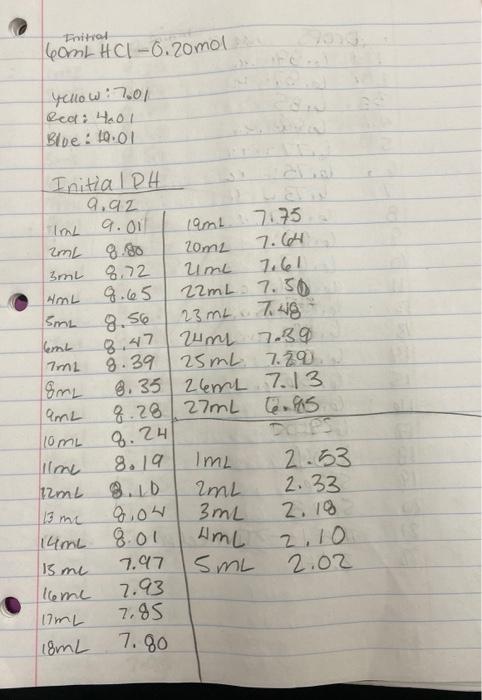 Initial
60mL HCl - 0.20mol
yellow: 7.01
Red: 4.01
Blue: 10.01
Initial pH
9.92
1mL 9.01
2mL 8.80
3mL 8.72
4mL 8.65
5mL 8.56
6mL 8.47
7mL 8.39
8mL 8.35
9mL 8.28
10mL 8.24
11mL 8.19
12mL 8.10
13mL 8.04
14mL 8.01
15mL 7.97
16mL 7.93
17mL 7.85
18mL 7.80
19mL 7.75
20mL 7.64
21mL 7.61
22mL 7.50
23mL 7.48
24mL 7.39
25mL 7.29
26mL 7.13
27mL 6.85
DROPS
1mL 2.53
2mL 2.33
3mL 2.18
4mL 2.10
5mL 2.02